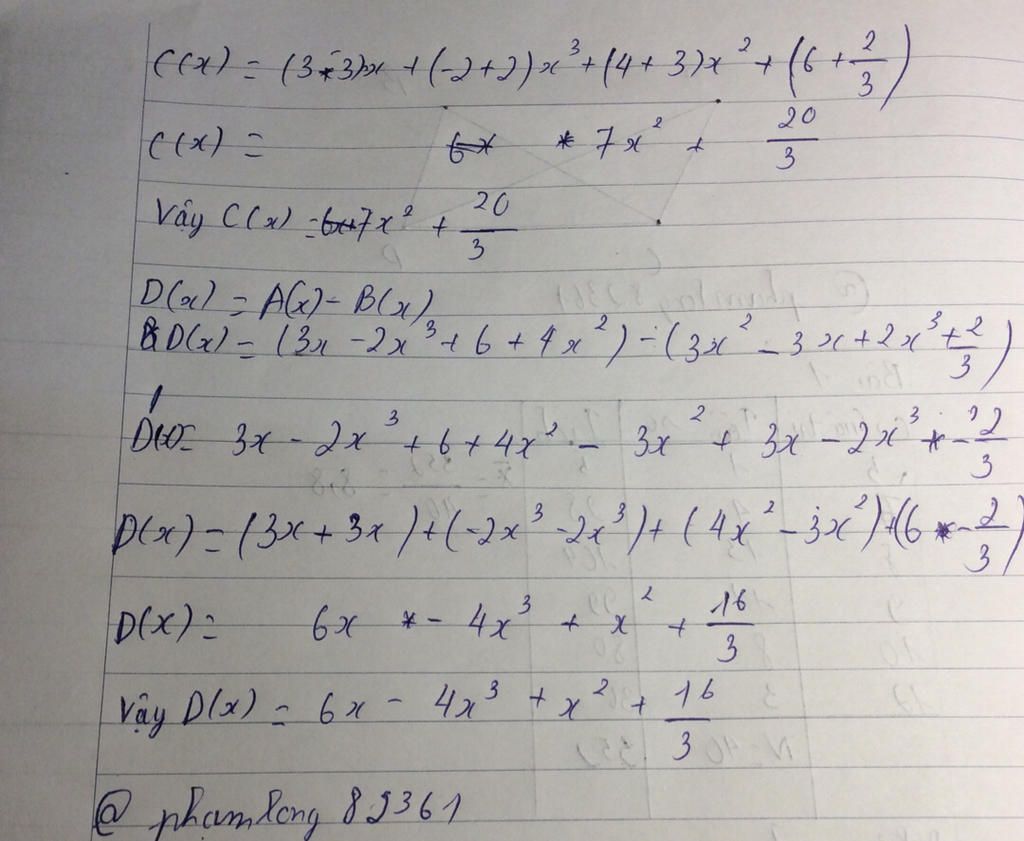 C(x) = (3-3)x + (-2+2)x³ + (4+3)x² + (6 + 2/3)
C(x) = 7x² + 20/3
Vậy C(x) = 7x² + 20/3
D(x) = A(x) - B(x)
D(x) = (3x - 2x³ + 6 + 4x²) - (3x² - 3x + 2x³ + 2/3)
D(x) = 3x - 2x³ + 6 + 4x² - 3x² + 3x - 2x³ - 2/3
D(x) = (3x + 3x) + (-2x³ - 2x³) + (4x² - 3x²) + (6 - 2/3)
D(x) = 6x - 4x³ + x² + 16/3
Vậy D(x) = 6x - 4x³ + x² + 16/3
@ phamlong 82361